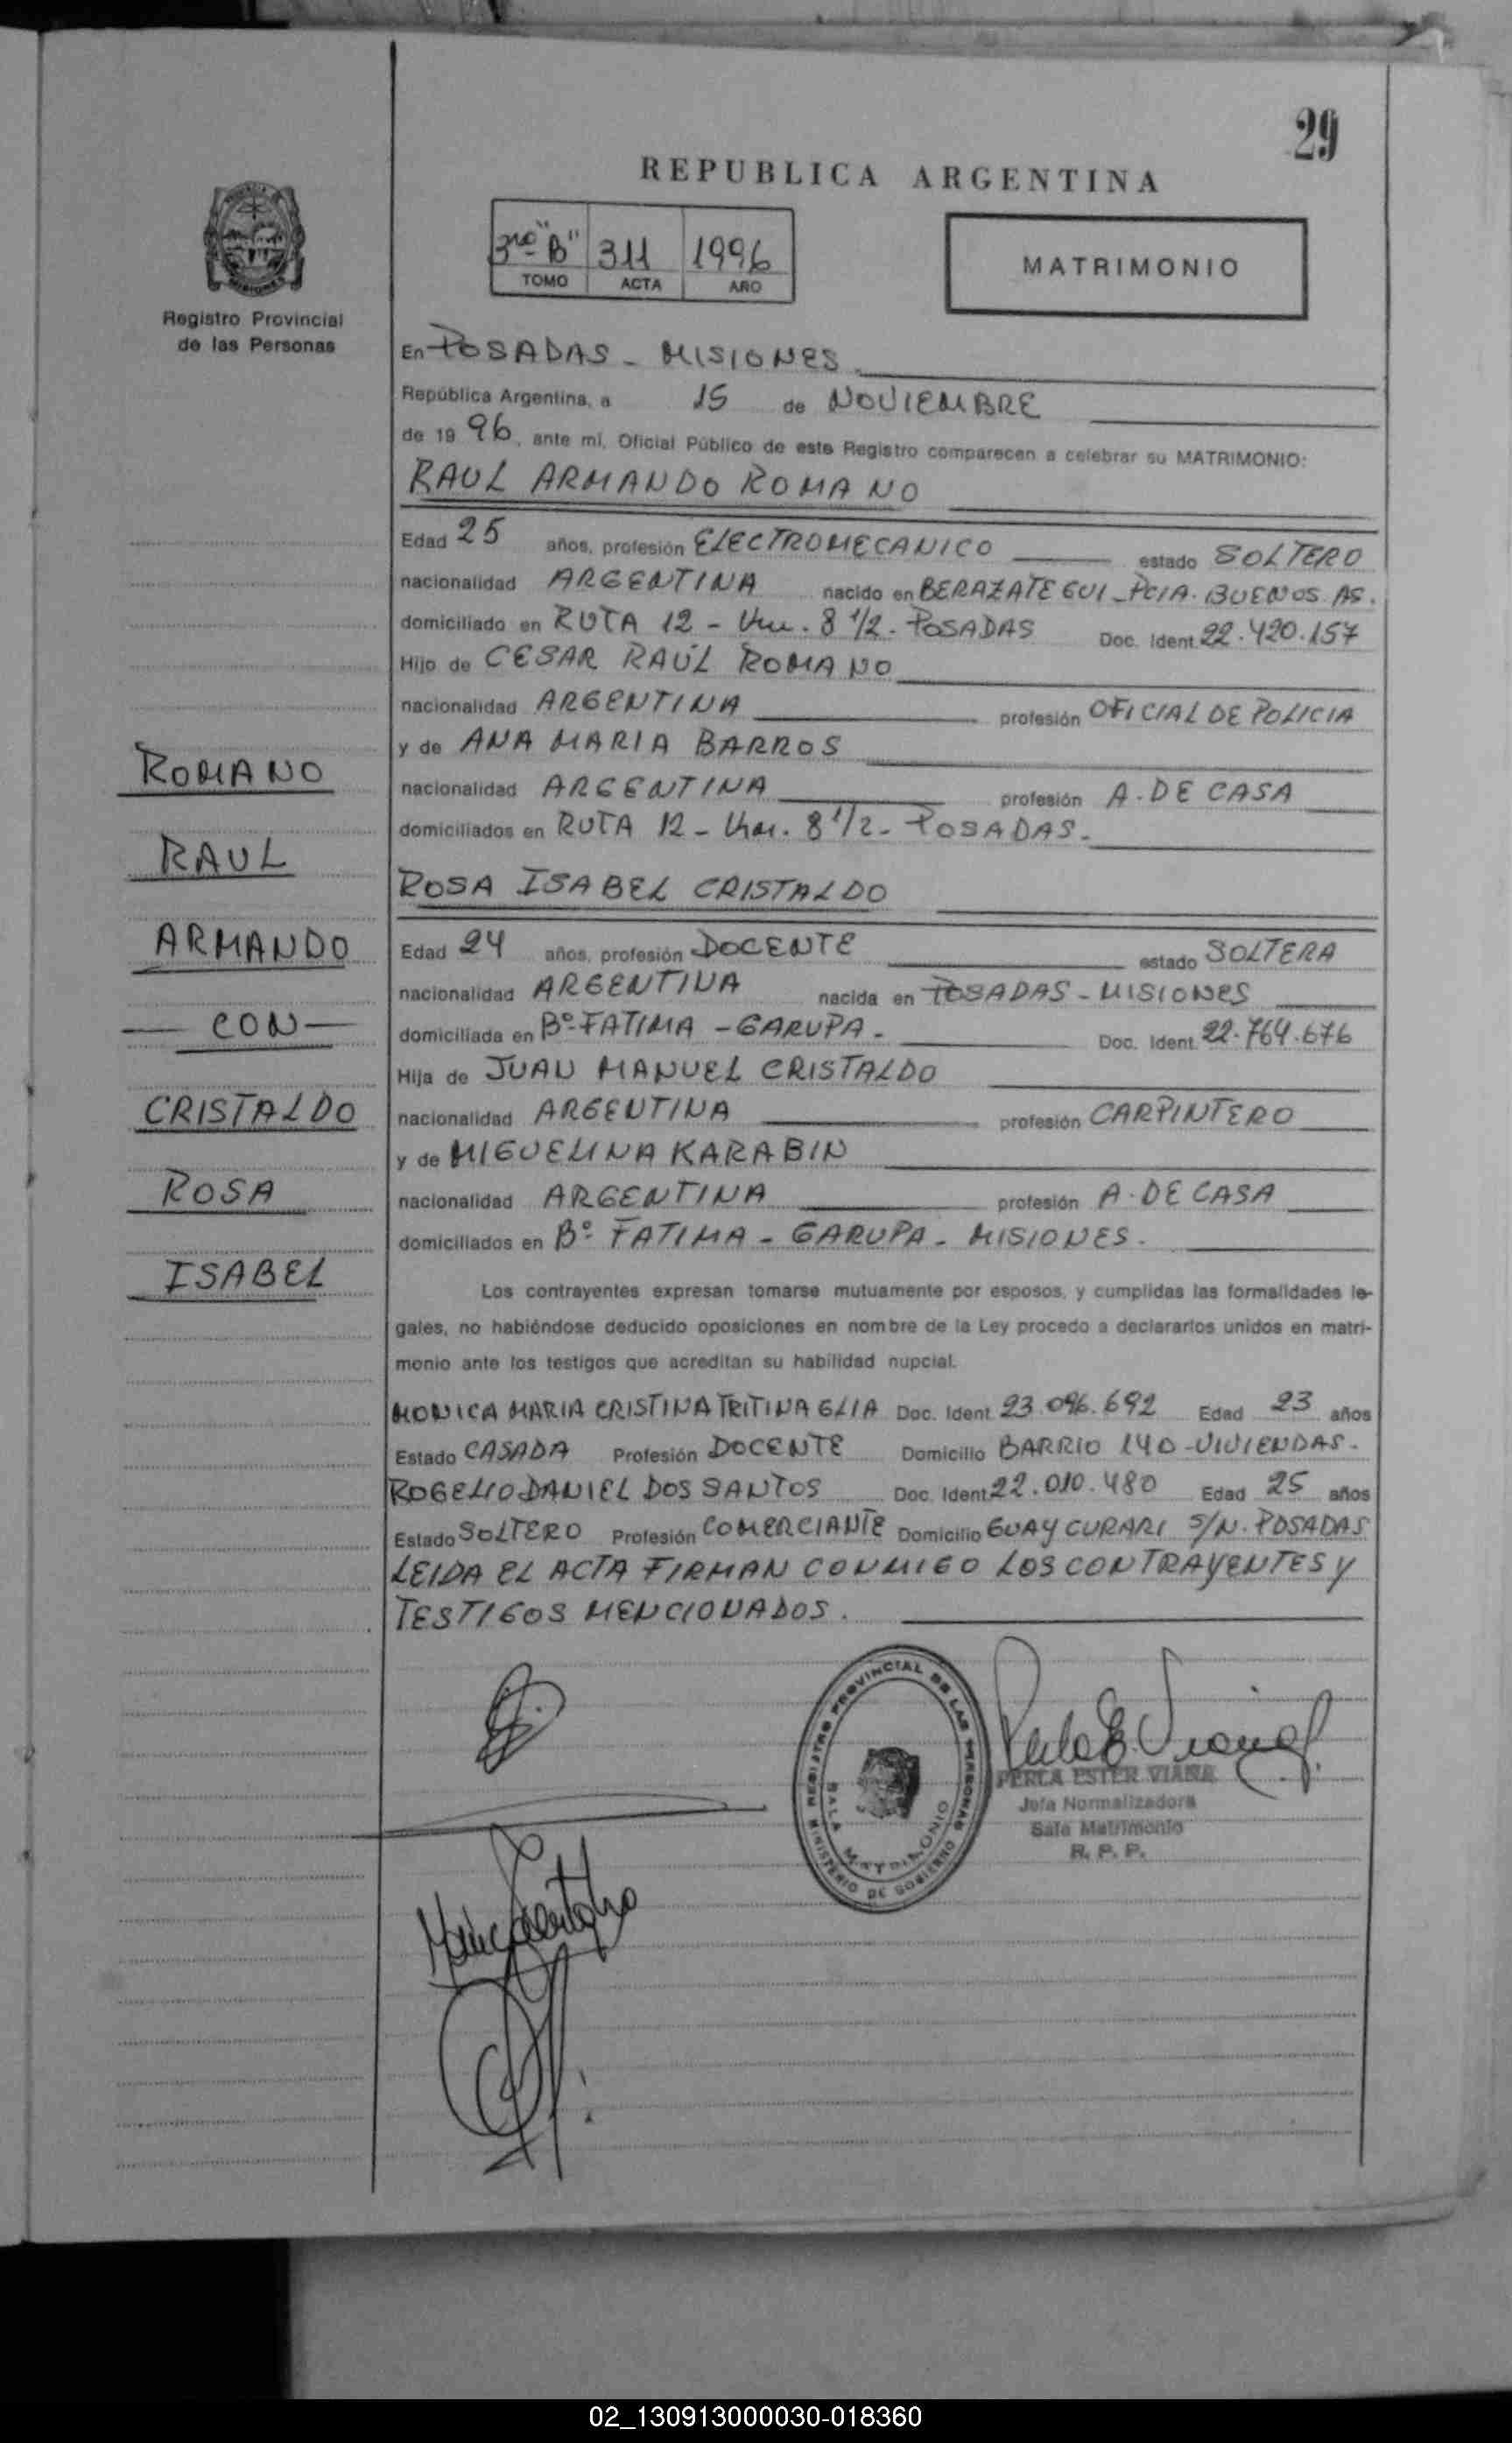 29
REPUBLICA ARGENTINA
3ro "B" 311 1996
TOMO ACTA AÑO
MATRIMONIO
Registro Provincial
de las Personas
En POSADAS - MISIONES.
República Argentina, a 15 de NOVIEMBRE
de 19 96, ante mí, Oficial Público de este Registro comparecen a celebrar su MATRIMONIO:
RAUL ARMANDO ROMANO
Edad 25 años, profesión ELECTROMECANICO estado SOLTERO
nacionalidad ARGENTINA nacido en BERAZATEGUI - PCIA. BUENOS AS.
domiciliado en RUTA 12 - Km. 8 1/2 - POSADAS Doc. Ident. 22.420.157
Hijo de CESAR RAÚL ROMANO
nacionalidad ARGENTINA profesión OFICIAL DE POLICIA
y de ANA MARIA BARROS
nacionalidad ARGENTINA profesión A. DE CASA
domiciliados en RUTA 12 - Km. 8 1/2 - POSADAS -
ROSA ISABEL CRISTALDO
Edad 24 años, profesión DOCENTE estado SOLTERA
nacionalidad ARGENTINA nacida en POSADAS - MISIONES
domiciliada en Bº FATIMA - GARUPA - Doc. Ident. 22.764.676
Hija de JUAN MANUEL CRISTALDO
nacionalidad ARGENTINA profesión CARPINTERO
y de MIGUELINA KARABIN
nacionalidad ARGENTINA profesión A. DE CASA
domiciliados en Bº FATIMA - GARUPA - MISIONES.
Los contrayentes expresan tomarse mutuamente por esposos, y cumplidas las formalidades le-
gales, no habiéndose deducido oposiciones en nombre de la Ley procedo a declararlos unidos en matri-
monio ante los testigos que acreditan su habilidad nupcial.
MONICA MARIA CRISTINA TRITINAGLIA Doc. Ident. 23.096.692 Edad 23 años
Estado CASADA Profesión DOCENTE Domicilio BARRIO 140 - VIVIENDAS -
ROGELIO DANIEL DOS SANTOS Doc. Ident. 22.010.480 Edad 25 años
Estado SOLTERO Profesión COMERCIANTE Domicilio GUAYCURARI S/N. POSADAS
LEIDA EL ACTA FIRMAN CONMIGO LOS CONTRAYENTES Y
TESTIGOS MENCIONADOS.
ROMANO
RAUL
ARMANDO
- CON -
CRISTALDO
ROSA
ISABEL
REGISTRO PROVINCIAL DE LAS PERSONAS
MINISTERIO DE GOBIERNO
SALA MATRIMONIO
PERLA ESTER VIANA
Jefa Normalizadora
Sala Matrimonio
R. P. P.
02_130913000030-018360